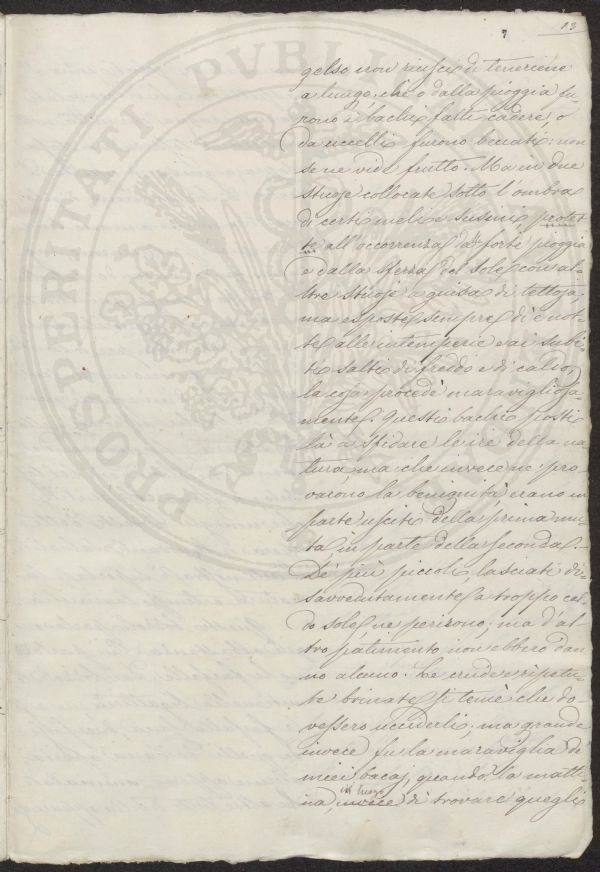 13
7
gelso non riuscì di tenercene
a lungo; che o dalla pioggia fu-
rono i bachi fatti cadere, o
da uccelli furono beccati: non
se ne vide frutto. Ma in due
stuoje collocate sotto l'ombra
di certi meli e susini, protet-
te all'occorrenza da forti pioggia
e dalla sferza del sole con al-
tre stuoje a guisa di tettoja,
ma esposte sempre dì e not-
te alle intemperie e ai subi-
ti salti di freddo e di caldo,
la cosa procedè maravigliosa-
mente. Questi bachi posti
là a sfidare le ire della na-
tura, ma che invece ne pro-
varono la benignità, erano in
parte usciti della prima mu-
ta, in parte della seconda.
De' più piccoli, lasciati di-
savvedutamente a troppo cal-
do sole, ne perirono; ma d'al-
tro patimento non ebbero dan-
no alcuno. Le crude ripetu-
te brinate si temè che do-
vessero ucciderli; ma grande
invece fu la maraviglia de'
miei bacaj, quando, la matti-
na, in luogo
invece di trovare quegli
PROSPERITATI PUBLICAE